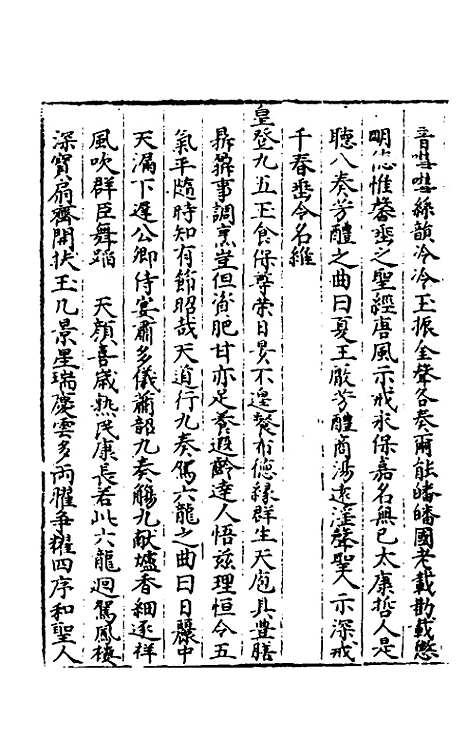 音嘒嘒絲韻冷冷玉振金聲各奏爾能皤皤國老載勸載懲
明德惟馨垂之聖經唐風示戒永保嘉名無已太康哲人是
聽八奏芳醴之曲曰夏王厭芳醴商湯遠淫聲聖人示深戒
千春垂令名維
皇登九五玉食保尊榮日昃不遑餐布德緣群生天庖具豐膳
鼎鼐事調烹豈但資肥甘亦足養遐齡達人悟玆理恒令五
氣平隨時知有節昭哉天道行九奏駕六龍之曲曰日麗中
天漏下遲公卿侍宴肅多儀蕭韶九奏觴九獻爐香細逐祥
風吹群臣舞蹈 天顔喜歲熟民康長若此六龍迴駕鳳樓
深寶扇齊開扶玉几景星瑞慶雲多兩曜爭耀四序和聖人